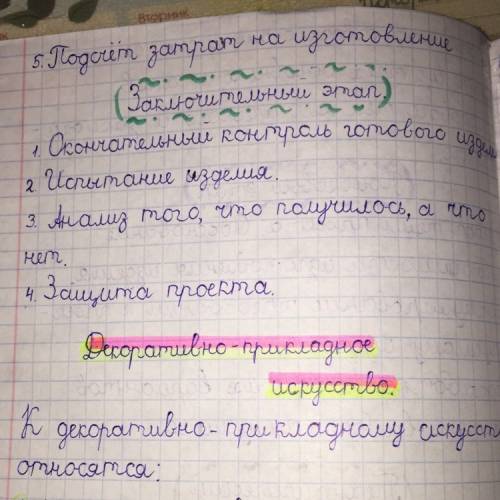 Вторник
5. Подсчёт затрат на изготовление
(Заключительный этап.)
1. Окончательный контроль готового издел
2. Испытание изделия.
3. Анализ того, что получилось, а что
нет.
4. Защита проекта.
Декоративно-прикладное
искусство.
К декоративно-прикладному искусст
относятся: